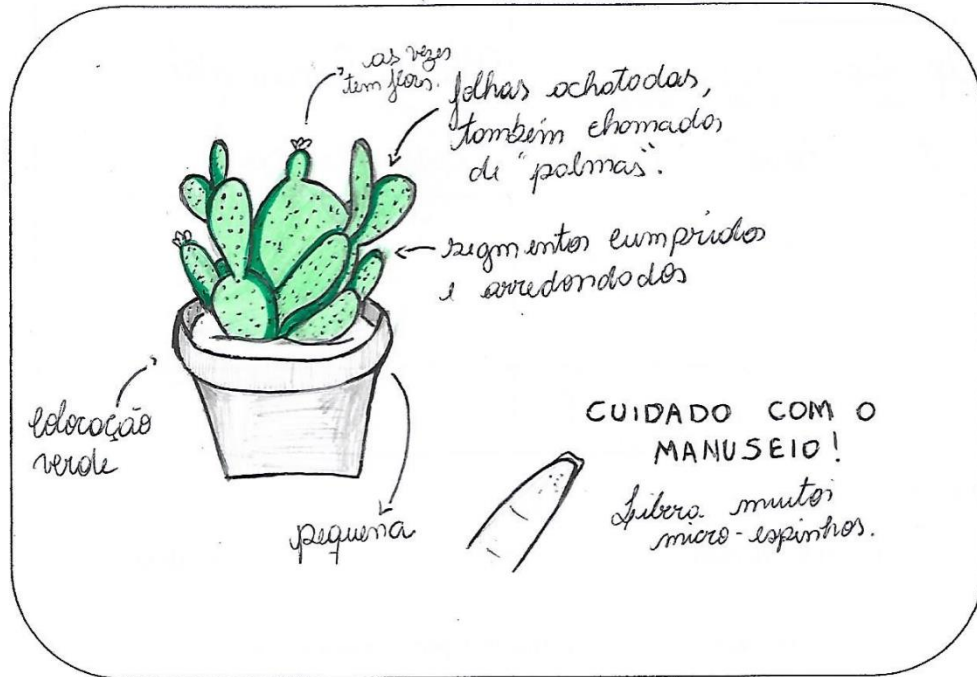 as vezes
tem flors.
folhas achatadas,
também chamados
de "palmas".
segmentos cumpridos
e arredondados
coloração
verde
pequena
CUIDADO COM O
MANUSEIO!
Libera muitos
micro-espinhos.